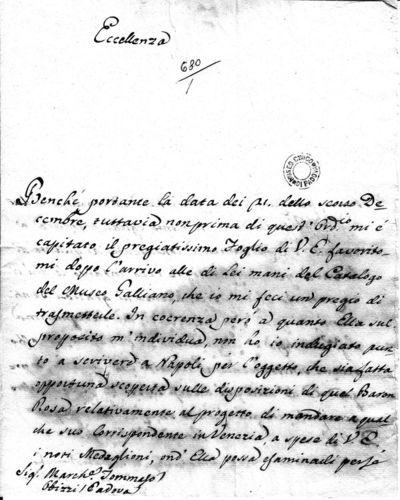 Eccellenza
680/1
Benché portante la data dei 21. dello scorso De
cembre, tuttavia non prima di quest' Ord.io mi é
capitato il pregiatissimo Foglio di V. E. favorito
mi dopo l'arrivo alle di Lei mani del Catalogo
del Museo Galliano, che io mi feci un pregio di
trasmetterle. In coerenza però a quanto Ella sul
proposito m'individua, non ho io indugiato pun
to a scrivere a Napoli per l'oggetto, che sia fatta
opportuna scoperta sulle disposizioni di quel Baron
Rosa relativamente al progetto di mandare a qual
che suo Corrispondente in Venezia a spese di V. E.
i noti Medaglioni, ond' Ella possa esaminarli per sé
Sig.r March.e Tommaso
Obizzi / Padova